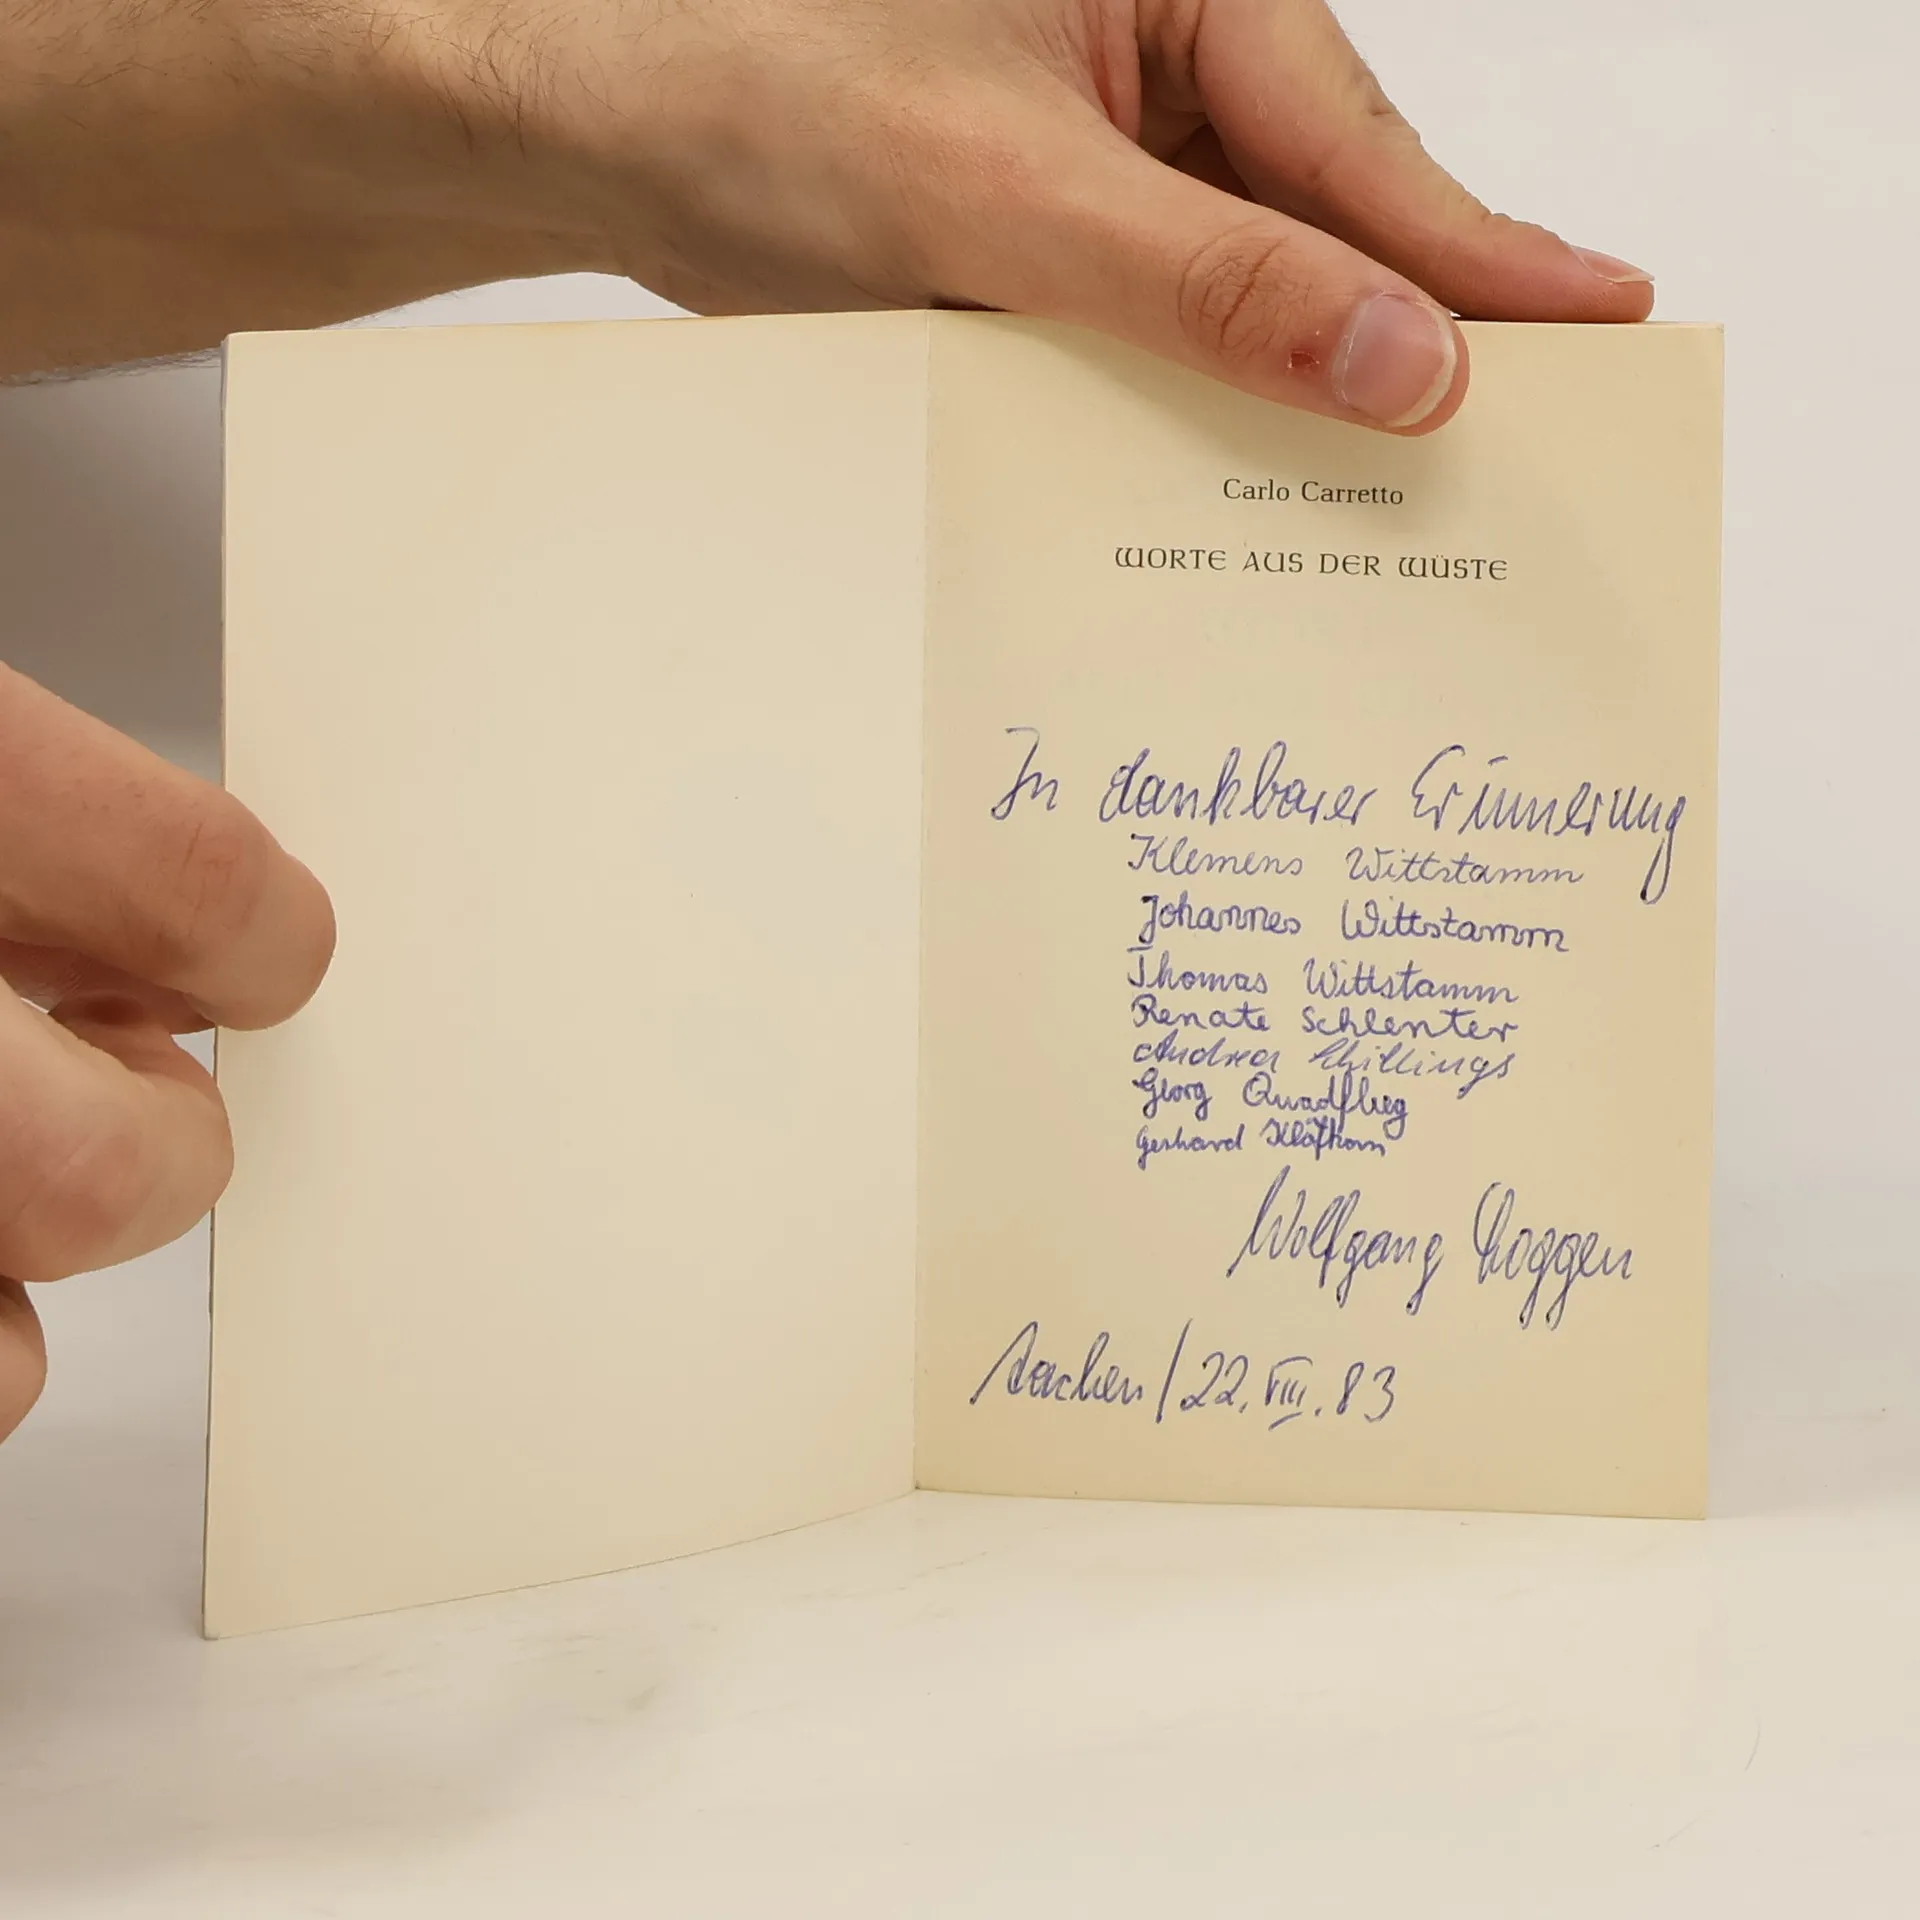 Carlo Carretto
WORTE AUS DER WÜSTE
In dankbarer Erinnerung
Klemens Wittstamm
Johannes Wittstamm
Thomas Wittstamm
Renate Schlenter
Andrea Schillings
Georg Quadflieg
Gerhard
Wolfgang
Aachen / 22. VIII. 83